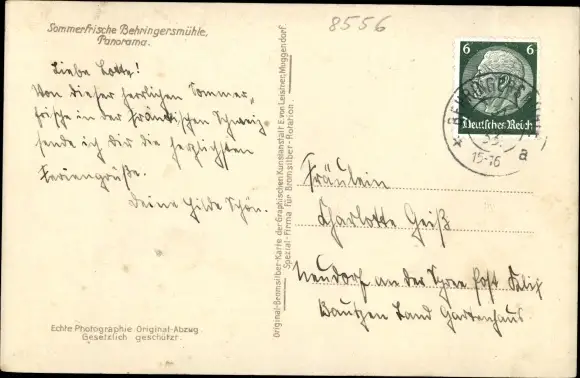 8556
Sommerfrische Behringersmühle,
Panorama.
Liebe Lotte!
Von dieser herrlichen Sommer-
frische in der Fränkischen Schweiz
sende ich dir die herzlichsten
Feriengrüße.
Deine Hilde Schön.
Echte Photographie Original-Abzug
Gesetzlich geschützt.
Original-Bromsilber-Karte der Graphischen Kunstanstalt E.von Leistner, Muggendorf
Spezial-Firma für Bromsilber-Rotation.
6 6
Deutsches Reich
15-16
a
Fräulein
Charlotte Geiß
Neudorf an der Spree Post Klix
Bautzen Land Gartenhaus.